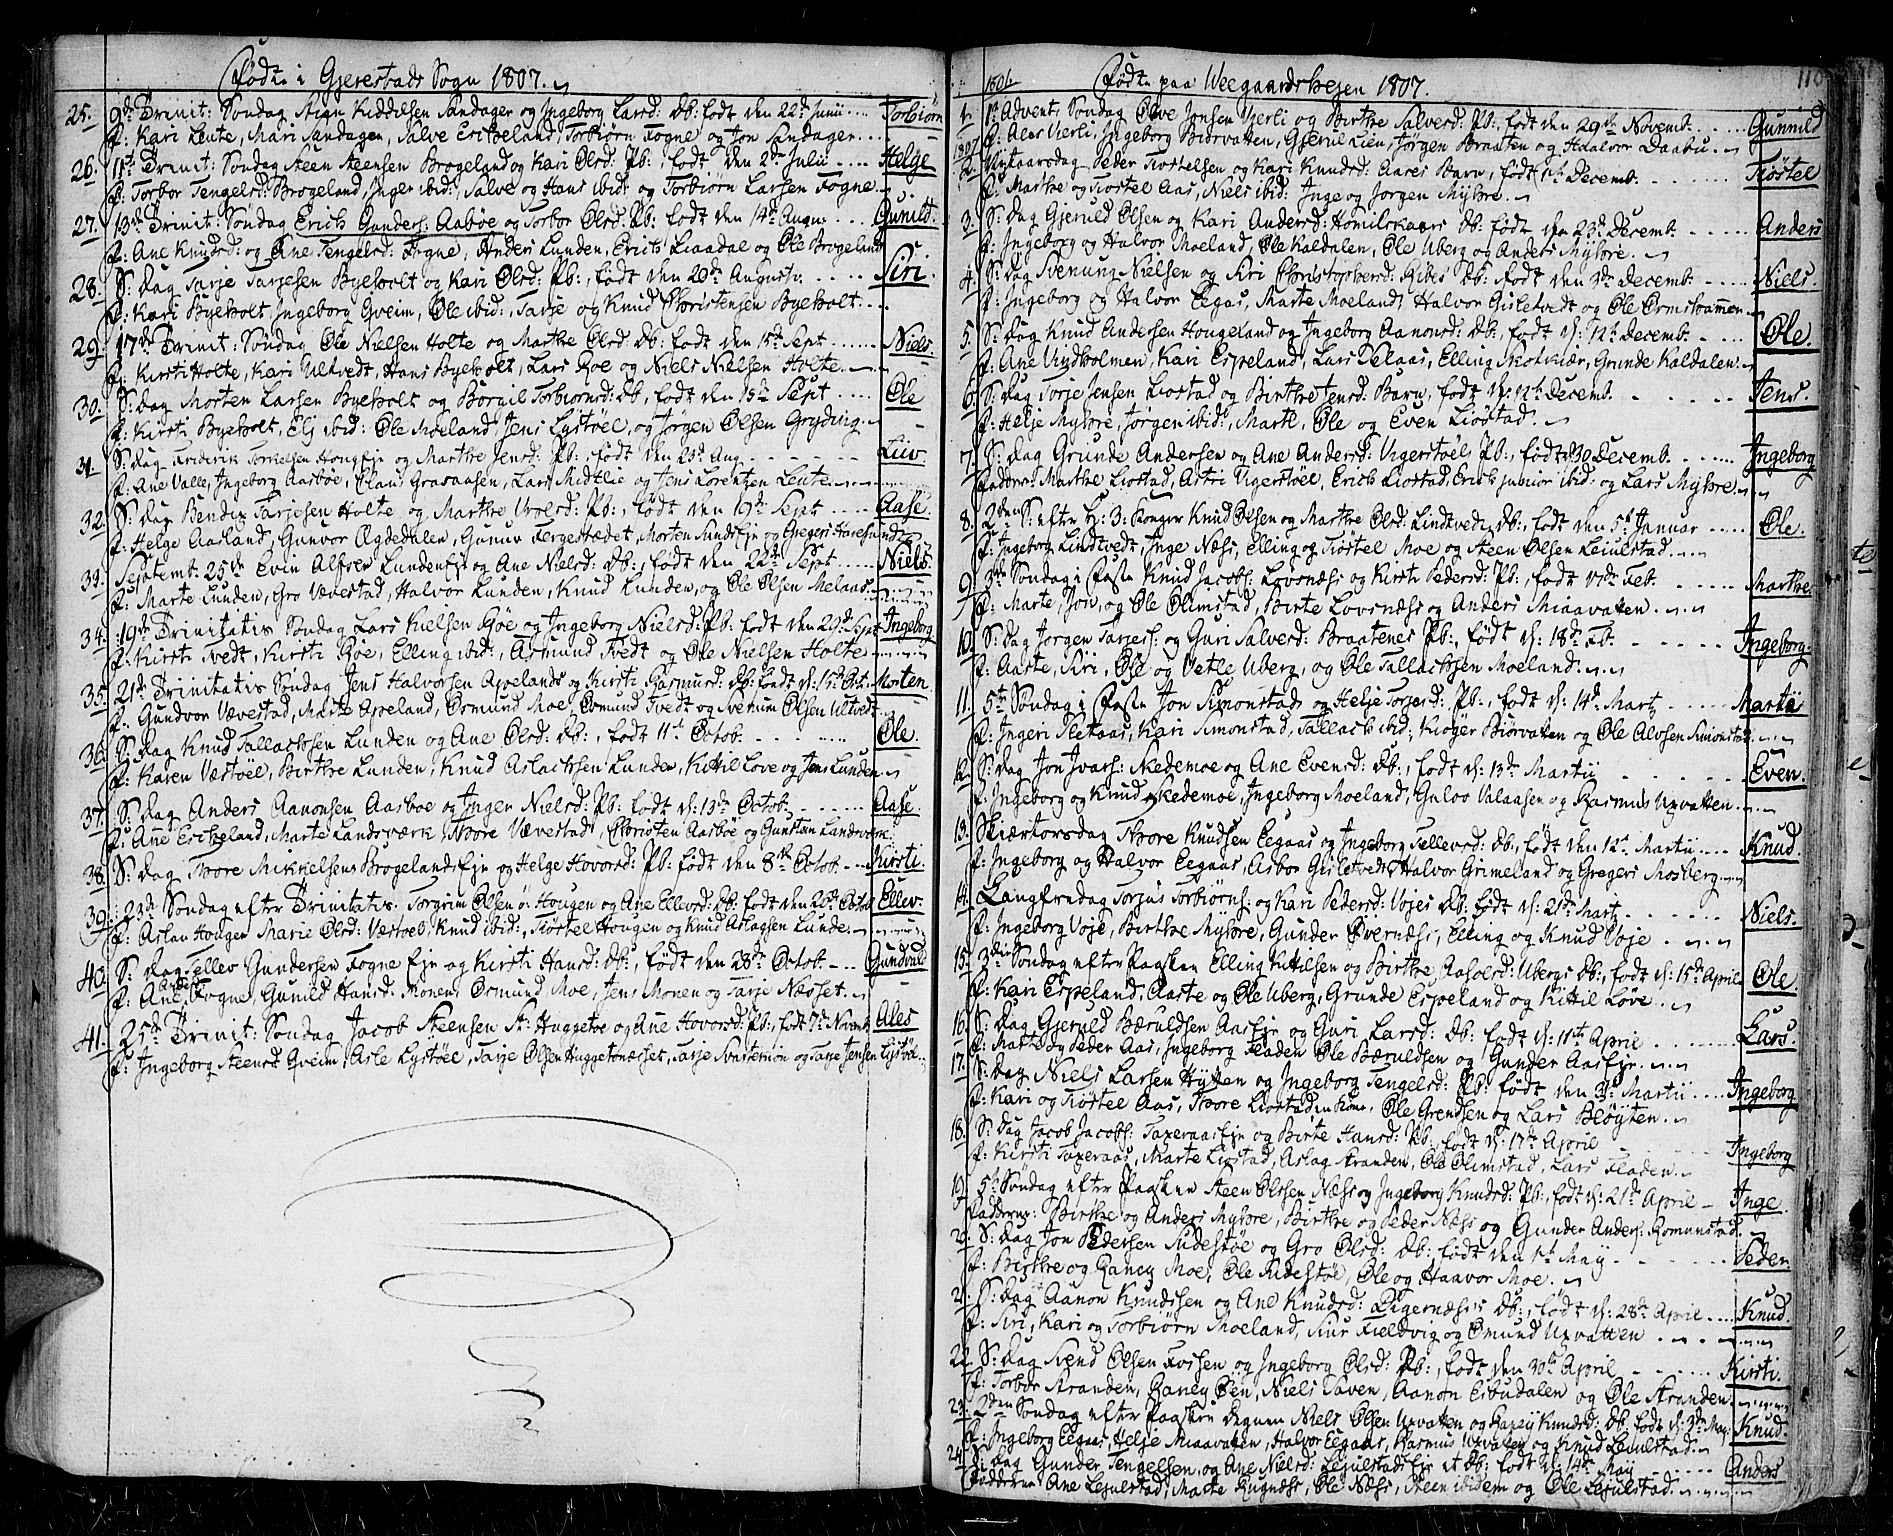 Fødte i Gjerestads Sogn 1807.
25. 9de Trinit: Søndag Stign Kiddelsen Sandager og Ingeborg Larsd: Db: født den 22de Junii .... Torbiørn
f: Kari Leute, Mari Sandagen, Salve Erikseland, Torbiørn Fogne og Jon Sandager
26. 11te Trinit: Søndag Steen Steensen Brogeland og Kari Olsd: Pb:, født den 2de Julii .... Helge
f: Torbor Tengelsd: Brogeland, Inger ibid:, Salve og Hans ibid: og Torbiørn Larsen Fogne
27. 13de Trinit: Søndag Erich Gunders: Aabøe og Torbor Olsd: Pb: født den 14de Augus .... Gunild.
f: Ane Knudsd: og Ane Tengelsd: Fogne, Anders Lunden, Erich Liaadal og Ole Brogeland
28. S: dag Tarje Tarjesen Byeholt og Kari Olsd: Pb:, født den 20de Augusti .... Siri.
f: Kari Byeholt, Ingeborg Gveim, Ole ibid:, Tarje og Knud Christensen Byeholt
29. 17de Trinit: Søndag Ole Nielsen Holte og Marthe Olsd: Db: født den 15de Sept .... Niels.
f: Kirsti Holte, Kari Ultvedt, Hans Byeholt, Lars Roe og Niels Nielsen Holte
30. S: dag Morten Larsen Byeholt og Borgil Torbiornsd: Db:, født den 15de Sept .... Ole
f: Kirsti Byeholt, Elj ibid: Ole Moeland, Jens Lystøel, og Jørgen Olsen Gryding
31. S: dag Friderik Torkelsen Hougeje og Marthe Jensd: Pb:, født den 23de Aug .... Liiv
f: Ane Valle, Ingeborg Aasbøe, Claus Graaaasen, Lars Midtlie og Jens Lorentzen Leute
32. S: dag Bendix Tarjesen Holte og Marthe Wolsd: Pb:, født den 19de Sept .... Aase
f: Helge Aasland, Gunvor Ogdedalen, Gunuv Fergestædet, Morten Sundseje og Gregers Haresund
33. Septemb: 25de Evin Alfsen Lundeneje og Ane Nielsd: Db:, født den 22de Sept .... Niels.
f: Marte Lunden, Gro Vævestad, Halvor Lunden, Knud Lunden, og Ole Olsen Melaas
34. 19de Trinitatis Søndag Lars Nielsen Roe og Ingeborg Nielsd: Pb: født den 29de Sept Ingeborg
f: Kirsti Tvedt, Kirsti Roe, Elling ibid:, Asmund Tvedt og Ole Nielsen Holte
35. 21de Trinitatis Søndag Jens Halvorsen Apelands og Kirsti Rasmusd: Db: født d: 15de Oct: Morten
f: Gundvor Vævestad, Marte Apeland, Ormund Moe, Osmund Tvedt og Svenum Olsen Ultvedt
36. S: dag Knud Tallachsen Lunden og Ane Olsd: Db:, født 11te Octob: .... Ole
f: Karen Væstøel, Birthe Lunden, Knud Aslachsen Lunden, Kittil Love og Jens Lunden
37. S: dag Anders Aanonsen Aasboe og Inger Nielsd: Pb: født d: 13de Octob: .... Aase.
f: Ane Erikseland, Marte Landsværk, Thore Vævestad, Christen Aasbøe og Gunsten Landsværk.
38. S: dag Thore Mikkelsen Brogelandseje og Helge Hovorsd: Pb: født den 8de Octob: .... Kirsti.
39. 23de Søndag efter Trinitatis Torgrim Olsen ø: Hougen og Ane Ellevsd: Db: født den 20de Octob: Ellev.
f: Aslau Hougen, Marie Olsd: Væstøel, Knud ibid:, Tiøstel Hougen og Knud Aslagsen Lunde
40. S: dag Ellev Gundersen Fogne Eje og Kirsti Hansd: Db:, født den 28de Octob: .... Gundvuld
f: Ane Anders Fogne, Gunild Hansd: Monen, Ormund Moe, Jens Monen og Tarje Næsset
41. 25de Trinit: Søndag Jacob Steensen St: Huggetoe og Ane Hovorsd: Pb:, født 7de Novemb Ales
f: Ingeborg Steensd: Gveim, Asle Lystøel, Tarje Olsen Huggetonæsset, og Tarje Jensen Lystøel
1806. Fødte paa Weegaardsheien 1807. 110
1. 1te Advent Søndag Olve Jensen Vierli og Birthe Salvesd: Pb:, født den 29de Novemb .... Gunnild
f: Ales Vierli, Ingeborg Biorvatten, Gjerul Lien, Jørgen Braaten og Haalvor Daabu
1807
2. Nytaarsdag Peder Tiostelsen og Kari Knudsd: Aases Barn, født 1te Decemb: .... Tiøstel
f: Marthe og Tiostel Aas, Niels ibid: Inge og Jørgen Myhre
3. S: dag Gjeruld Olsen og Kari Andersd: Homilskaars Db: født den 23de Decemb: .... Anders
f: Ingeborg og Halvor Moeland, Ole Kaldalen, Ole Uberg og Anders Myhre
4. S: dag Svenung Nielsen og Siri Christophersd: Ribes Db: født den 3de Decemb: .... Niels.
f: Ingeborg og Halvor Eegaas, Marte Moeland, Halvor Gisletvedt og Ole Ormsbommen
5. S: dag Knud Andersen Hougeland og Ingeborg Aanonsd: Db:, født d: 12te Decemb: .... Ole.
f: Ane Nydholmen, Kari Espeland, Lars Selaas, Elling Skotkiær, Grunde Kaldalen
6. S: dag Torje Jensen Liostad og Birthe Jensd: Barn, født d: 12te Decemb: .... Jens.
f: Helje Myhre, Jørgen ibid:, Marte, Ole og Even Liostad
7. S: dag Grunde Andersen og Ane Andersd: Vigerstøel Pb:, født d: 30 Decemb: .... Ingeborg
Faddere: Marthe Liostad, Astri Vigerstøel, Erich Liostad, Erich junior ibid: og Lars Myhre
8. 2den S: efter H: 3: Konger Knud Olsen og Marthe Olsd: Lindtvedt, Db:, født den 5te Januar .... Ole.
f: Ingeborg Lindtvedt, Inge Næss, Elling og Tiøstel Moe og Steen Olsen Leiulstad
9. 3de Søndag i Faste Knud Jacobs: Lovsnæs og Kirsti Pedersd: Pb:, født 17de Feb. .... Marthe
f: Marte, Jon, og Ole Olimstad, Birte Lovsnæs og Anders Miaavatten
10. S: dag Jørgen Tarjes: og Guri Salvesd: Braatenes Pb:, født d: 18de Feb. .... Ingeborg.
f: Aaste, Siri, Ole og Vetle Uberg, og Ole Tallachsen Moeland
11. 5te Søndag i Faste Jon Simonstads og Helje Torjesd: Pb:, født d: 14de Marts .... Marthe
f: Ingeri Sletaas, Kari Simonstad, Tallach ibid:, Kiøger Biorvatten og Ole Alvsen Simonstad
12. S: dag Jon Ivars: Skedemoe og Ane Evensd: Db:, født d: 13de Martii .... Even.
f: Ingeborg og Knud Skedemoe, Ingeborg Moeland, Guloo Valaasen og Rasmus Uxvatten
13. Skiærtorsdag Thore Knudsen Eegaas og Ingeborg Tellevsd: Db:, født den 12te Martii .... Knud
f: Ingeborg og Halvor Eegaas, Asbor Gisletvedt, Halvor Grimeland og Gregers Mosberg
14. Langfredag Torjus Torbiørns: og Kari Pedersd: Vojes Db: født d: 21de Marts .... Niels.
f: Ingeborg Voje, Birthe Myhre, Gunder Overnæs, Elling og Knud Voje
15. 3die Søndag efter Paasken Elling Kittilsen og Birthe Aasoersd: Ubergs Db:, født d: 15de April Ole.
f: Kari Espeland, Aaste og Ole Uberg, Grunde Espeland og Kittil Løve
16. S: dag Gjeruld Bæruldsen Aaseje og Guri Larsd: Db: født d: 11te April .... Lars.
f: Marte og Peder Aas, Ingeborg Fladen, Ole Bæruldsen og Gunder Aaseje
17. S: dag Niels Larsen Hytten og Ingeborg Tengelsd: Pb: født den 3de Martii .... Ingeborg
f: Kari og Tiøstel Aas, Thore Liostad, Ole Grendsen og Lars Bløyten
18. S: dag Jacob Jacobs: Taxeraaseje og Birte Hansd: Pb: født d: 17de April .... Ingeborg
f: Kirsti Taxeraas, Marte Liostad, Aslag Stranden, Ole Olimstad, Lars Fladen
19. 5te Søndag efter Paasken Steen Olsen Næss og Ingeborg Knudsd: Pb:, født d: 21de April .... Inge
Fadderne: Birthe og Anders Myhre, Birthe og Peder Næss og Gunder Anders: Romunstad
20. S: dag Jon Pedersen Sidestøe og Gro Olsd: Db: født den 1te May .... Peder.
f: Birthe og Rancy Moe, Ole Sidestøe, Ole og Haavor Moe
21. S: dag Aanon Knudsen og Ane Knudsd: Digernæses Db:, født d: 28de April .... Knud
f: Siri, Kari og Torbiørn Moeland, Siur Fieldvig og Omund Uxvatten
22. S: dag Svend Olsen Fossen og Ingeborg Olsd: Pb:, født den 30te April .... Kirsti.
f: Torbor Stranden, Rancy Øen, Niels Saven, Aanon Esbudalen og Ole Stranden
23. 2den Søndag efter Paasken Degnen Niels Olsen Uxvatten og Rancy Knudsd: Db: født d: 3de May Knud.
f: Ingeborg Eegaas, Helje Miaavatten, Halvor Eegaas, Rasmus Uxvatten og Knud Leiulstad
24. S: dag Gunder Tengelsen og Ane Nielsd: Leiulstadseje et Db: født d: 14de May .... Anders
Fadderne: Ane Leiulstad, Marte Rugnæs, Ole Næss, Steen ibidem og Ole Leiulstad